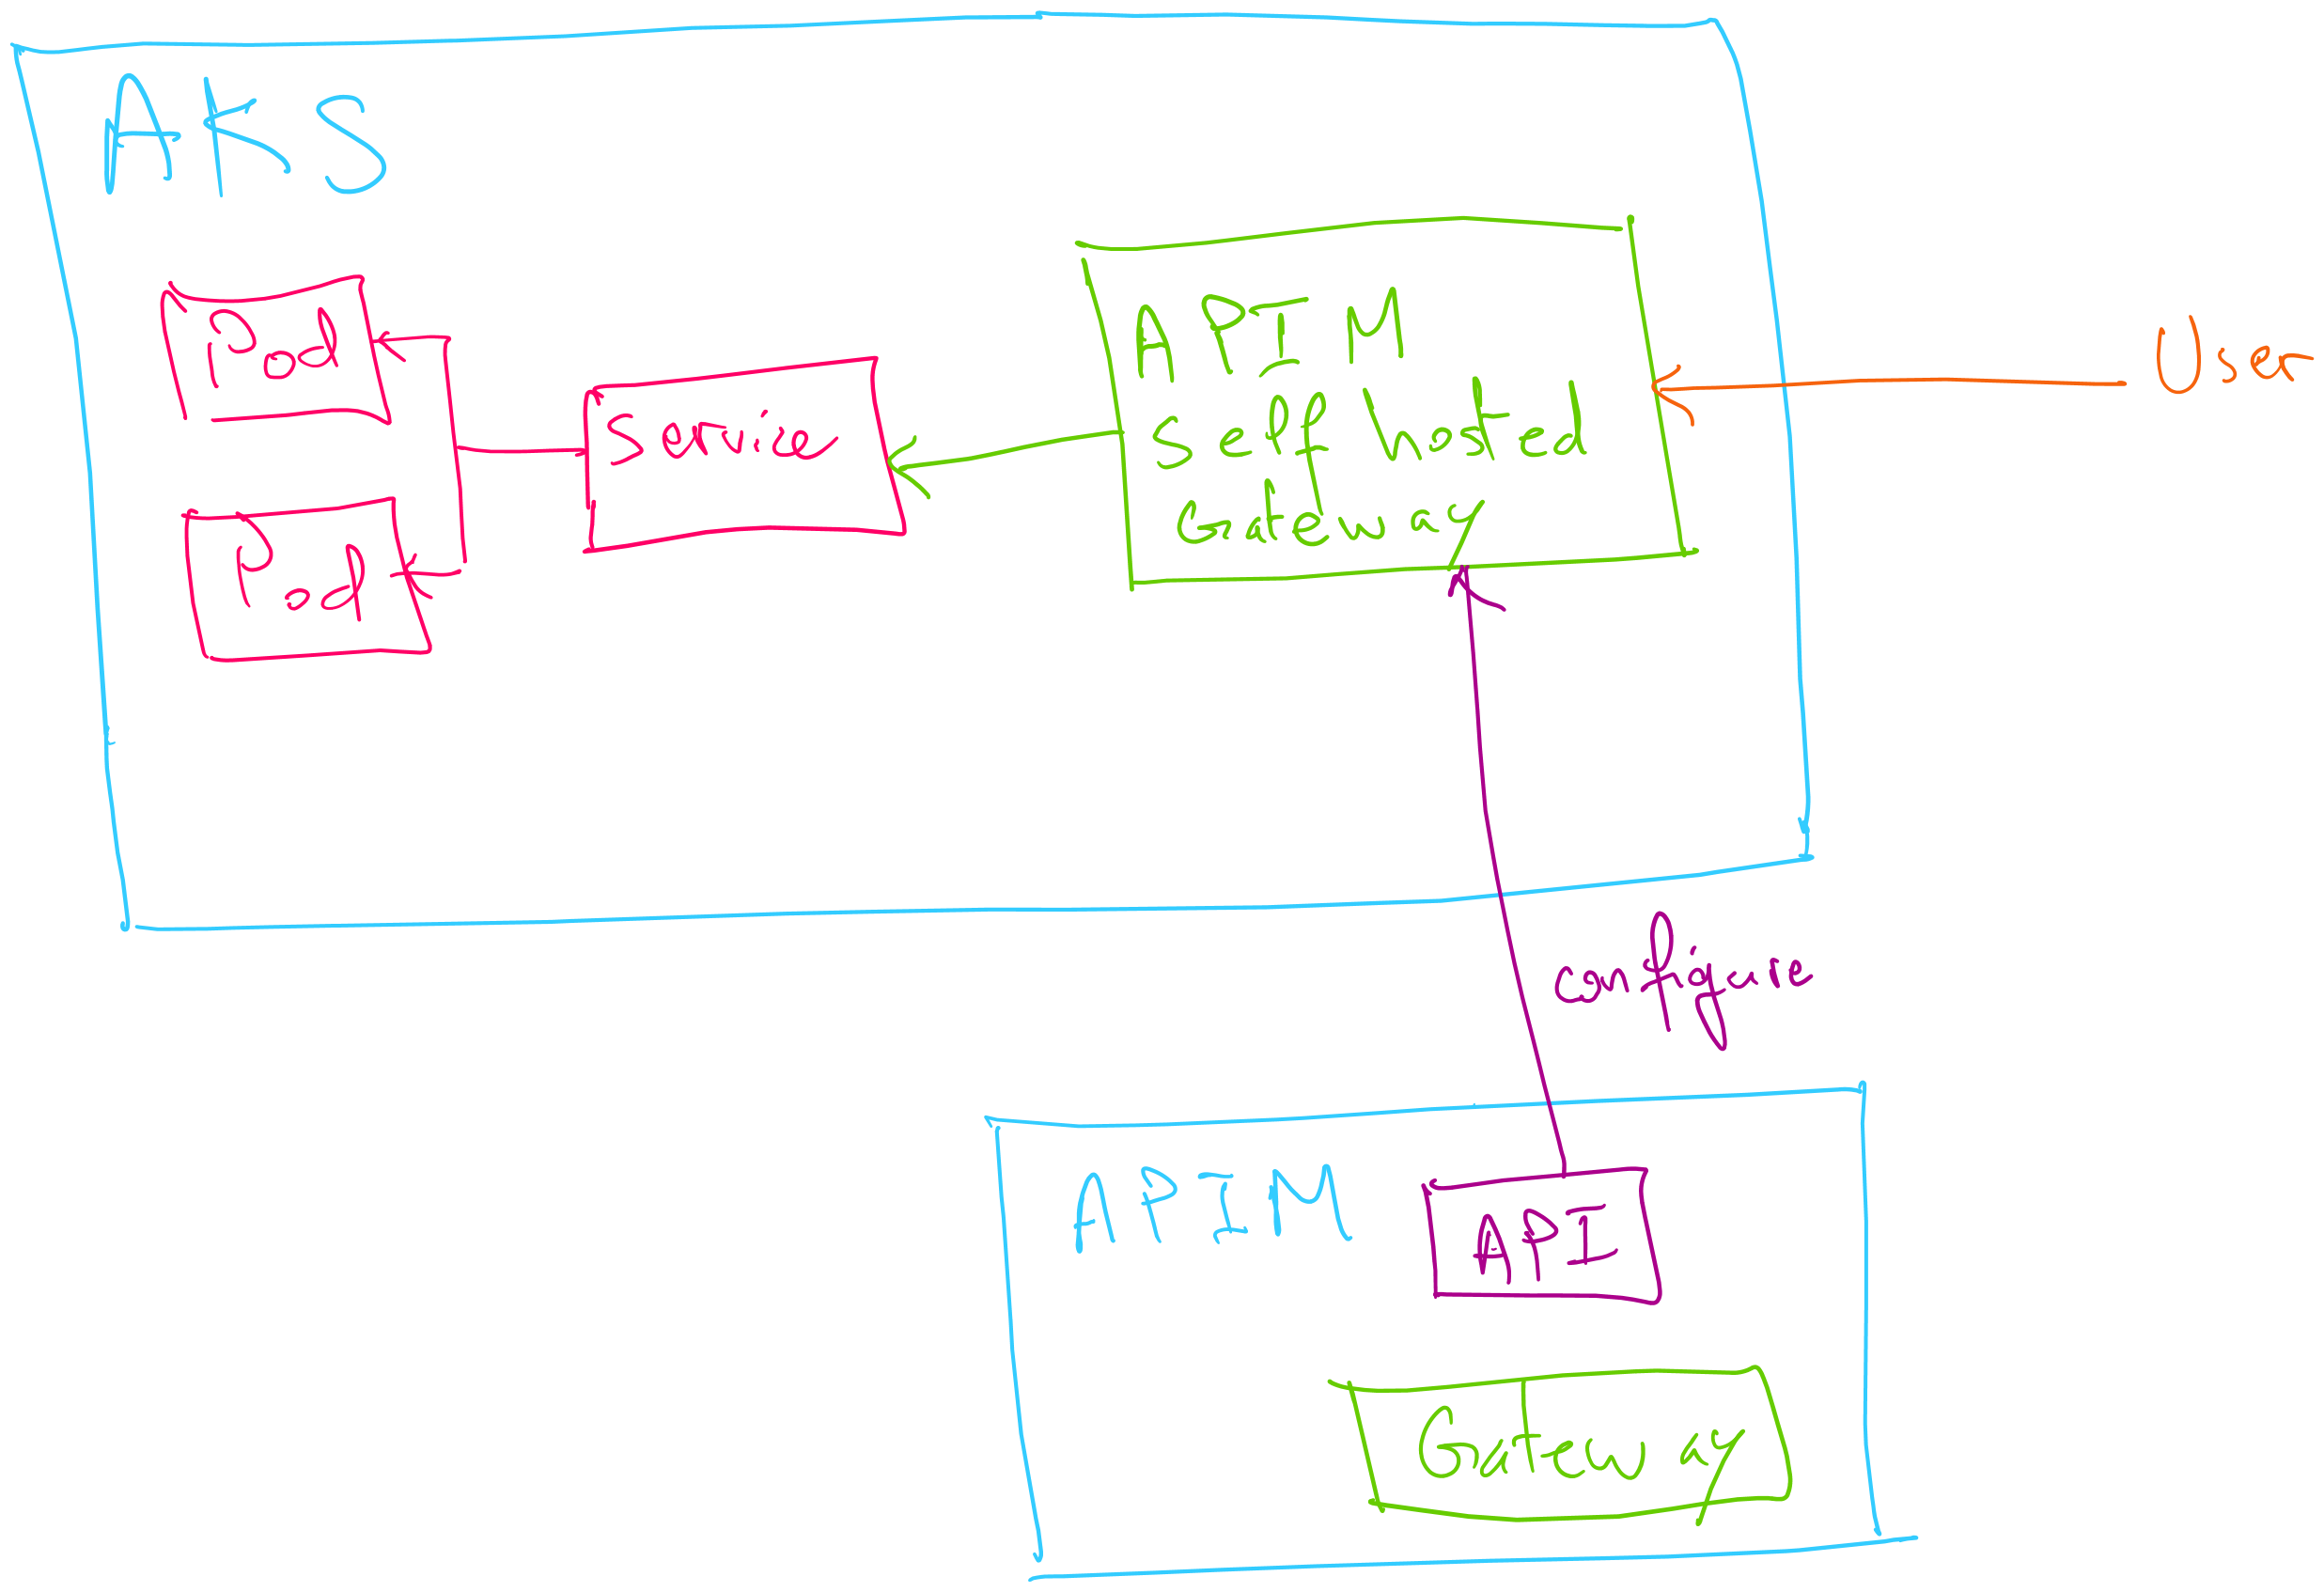 AKS
Pod
Pod
Service
APIM
Self hosted
Gateway
User
configure
APIM
API
Gateway